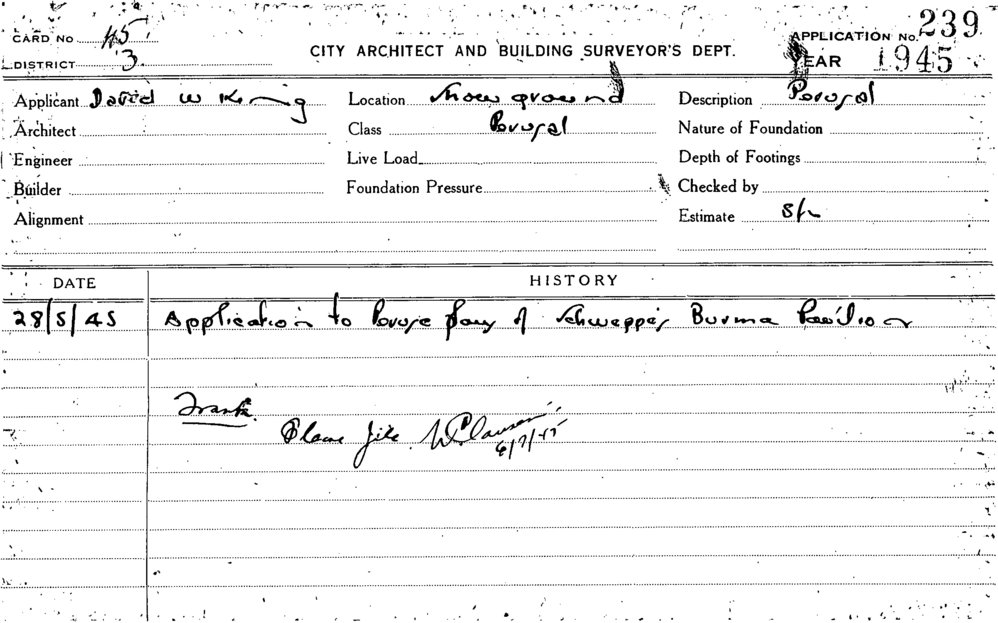 CARD NO 45
APPLICATION No. 239
CITY ARCHITECT AND BUILDING SURVEYOR'S DEPT.
DISTRICT 3
YEAR 1945
Applicant David W King
Location Showground
Description Perusal
Architect
Class Perusal
Nature of Foundation
Engineer
Live Load
Depth of Footings
Builder
Foundation Pressure
Checked by
Alignment
Estimate
DATE
HISTORY
28/5/45 Application to Peruse plans of Schweppes Burma Pavilion
Frank.
Please file.
6/7/45